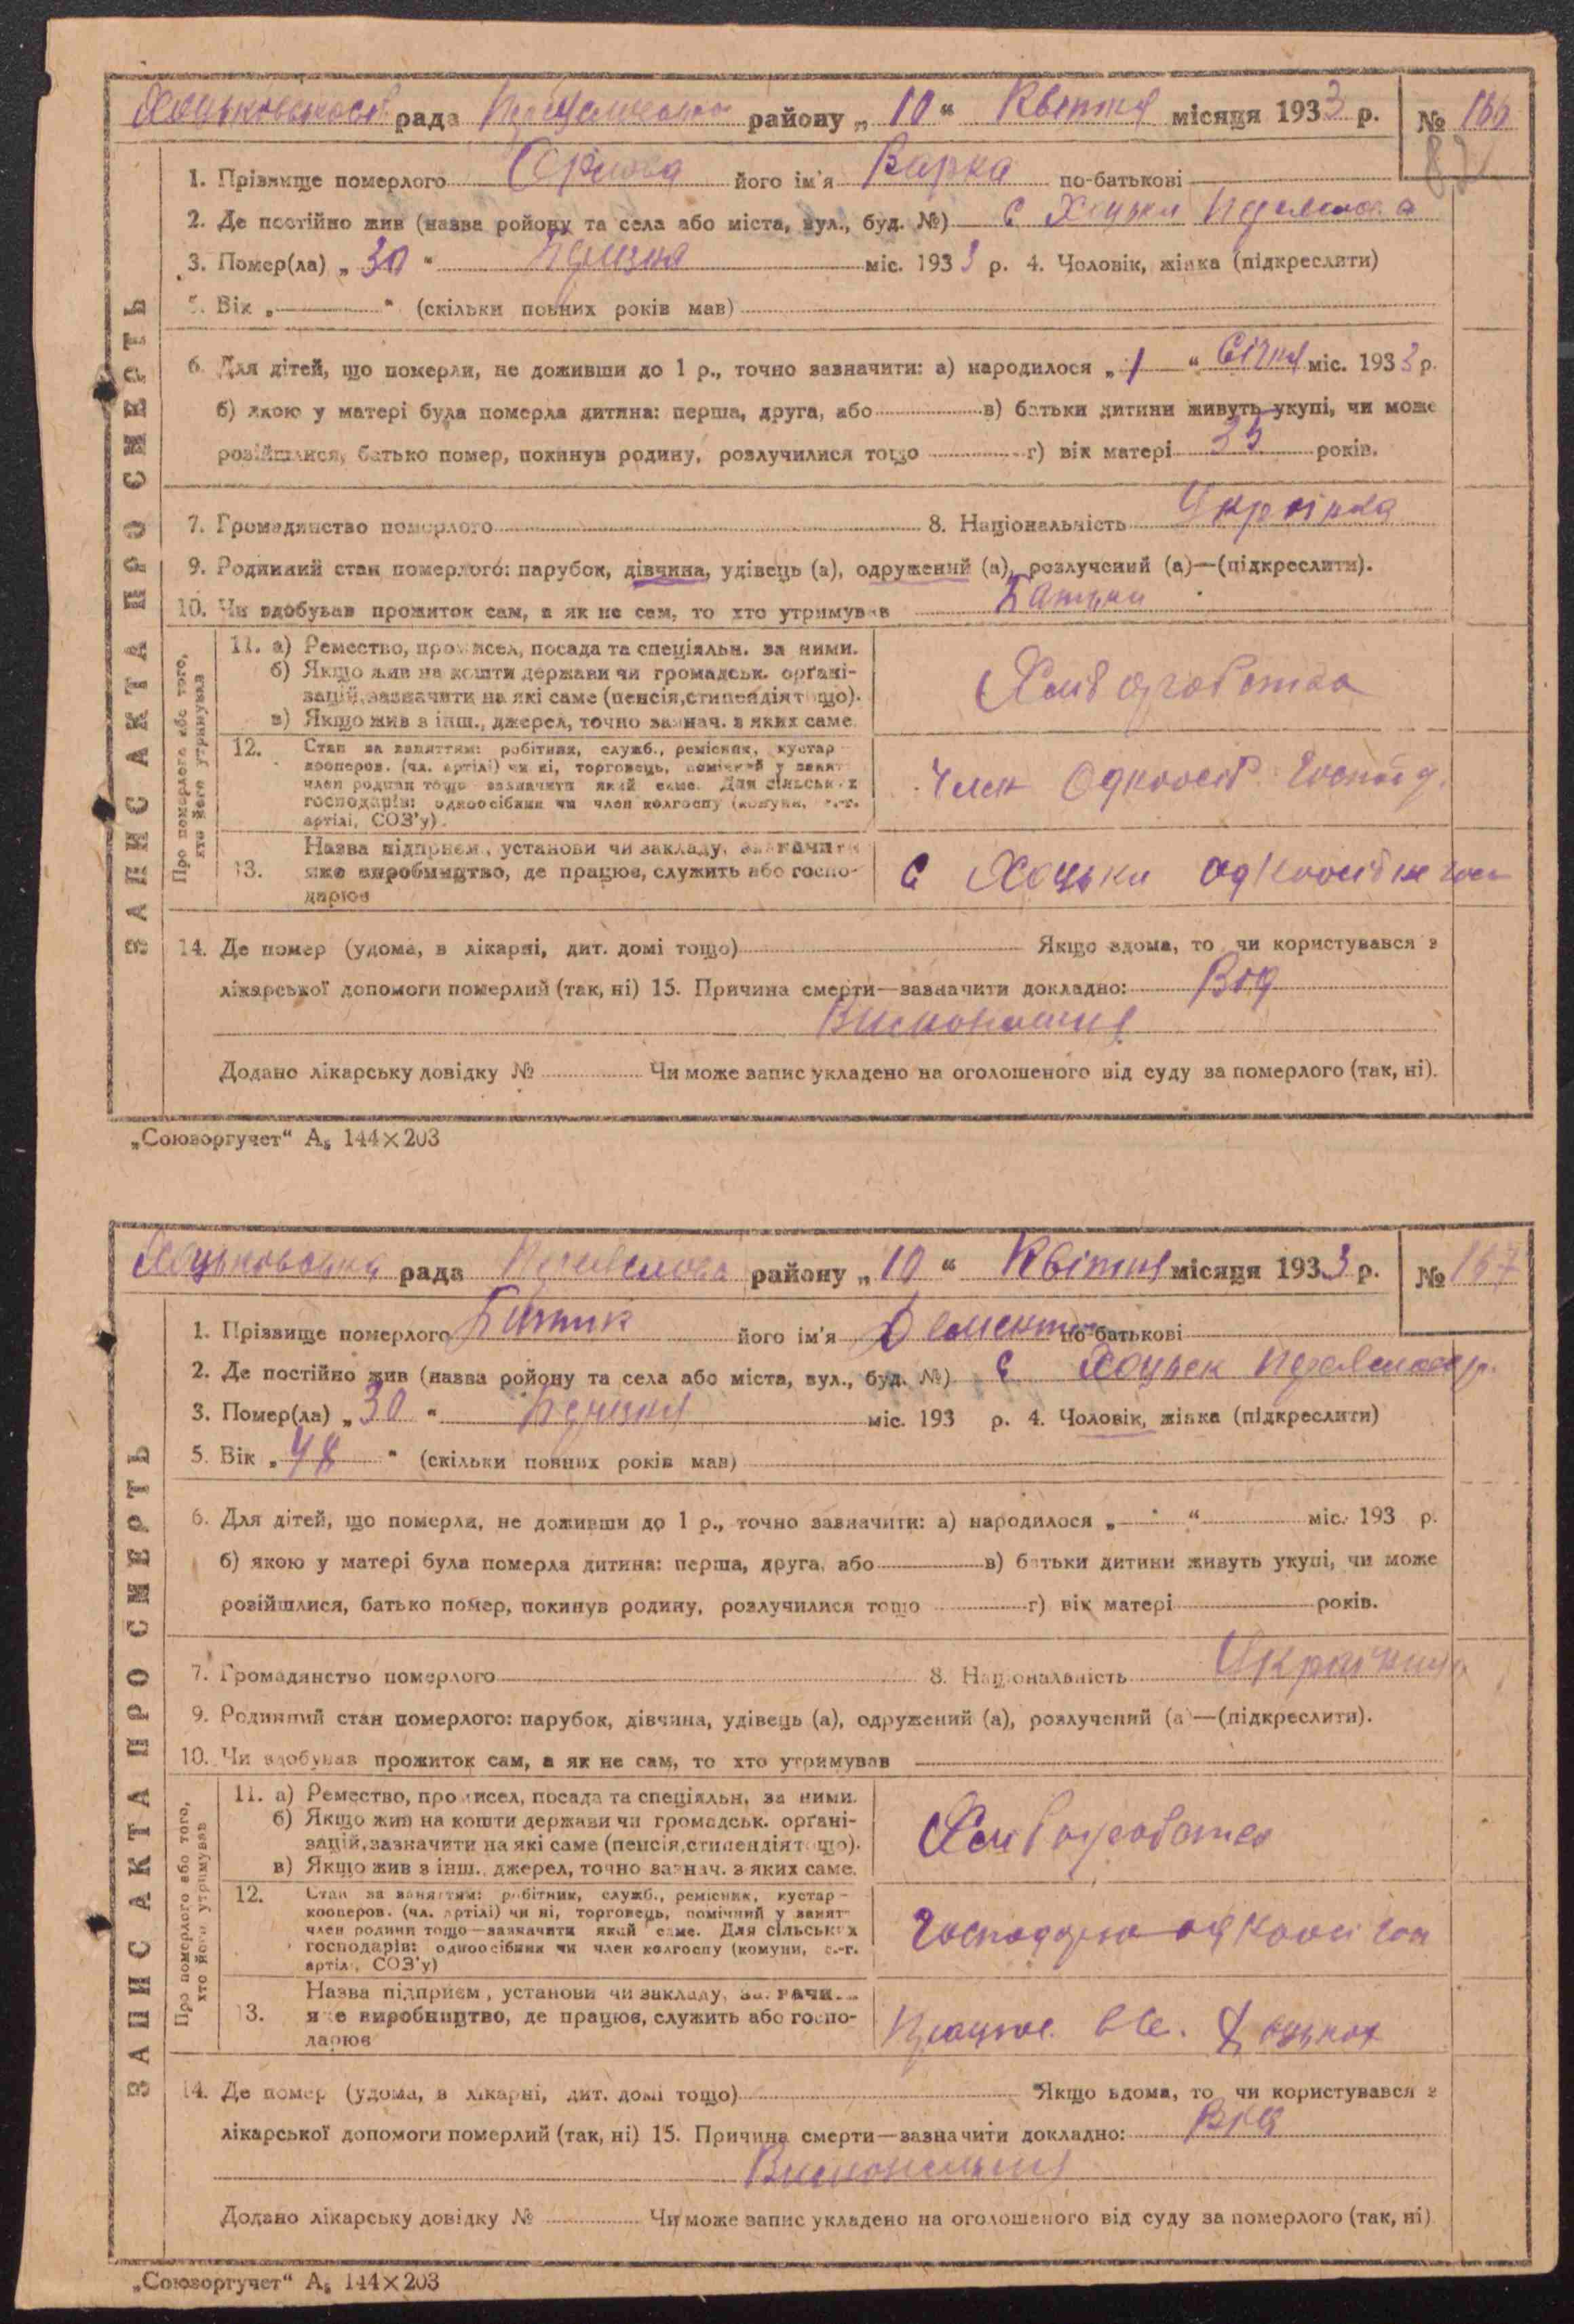 рада району „ 10 “ Квітня місяця 1933 р. № 166
1. Прізвище померлого його ім'я Варка по-батькові
2. Де постійно жив (назва ройону та села або міста, вул., буд. №) с Хоцьки
3. Помер(ла) „ 30 “ міс. 1933 р. 4. Чоловік, жінка (підкреслити)
5. Вік „ “ (скільки повних років мав)
6. Для дітей, що померли, не доживши до 1 р., точно зазначити: а) народилося „ 1 “ Січня міс. 1933 р.
б) якою у матері була померла дитина: перша, друга, або в) батьки дитини живуть укупі, чи може
розійшлися, батько помер, покинув родину, розлучилися тощо г) вік матері 35 років.
7. Громадянство померлого 8. Національність Українка
9. Родинний стан померлого: парубок, дівчина, удівець (а), одружений (а), розлучений (а)—(підкреслити).
10. Чи здобував прожиток сам, а як не сам, то хто утримував Батьки
ЗАПИС АКТА ПРО СМЕРТЬ
Про померлого або того, хто його утримував
11. а) Ремество, промисел, посада та спеціяльн. за ними.
б) Якщо жив на кошти держави чи громадськ. орґані-
зацій, зазначити на які саме (пенсія, стипендія тощо).
в) Якщо жив з інш., джерел, точно зазнач. з яких саме.
Хліборобство
12. Стан за заняттям: робітник, служб., ремісник, кустар—
кооперов. (чл. артілі) чи ні, торговець, помічний у занят—
член родини тощо—зазначити який саме. Для сільських
господарів: одноосібник чи член колгоспу (комуни, с.-г.
артілі, СОЗ'у).
Член Одноосіб. Господ.
13. Назва підприєм., установи чи закладу, зазначити
яке виробництво, де працює, служить або госпо-
дарює
с Хоцьки одноосібне гос
14. Де помер (удома, в лікарні, дит. домі тощо) Якщо вдома, то чи користувався з
лікарської допомоги померлий (так, ні) 15. Причина смерти—зазначити докладно: Від
Виснаження
Додано лікарську довідку № Чи може запис укладено на оголошеного від суду за померлого (так, ні).
„Союзоргучет“ А₅ 144×203
рада району „ 10 “ Квітня місяця 1933 р. № 167
1. Прізвище померлого його ім'я по-батькові
2. Де постійно жив (назва ройону та села або міста, вул., буд. №) с Хоцьек
3. Помер(ла) „ 30 “ міс. 193 р. 4. Чоловік, жінка (підкреслити)
5. Вік „ 48 “ (скільки повних років мав)
6. Для дітей, що померли, не доживши до 1 р., точно зазначити: а) народилося „ “ міс. 193 р.
б) якою у матері була померла дитина: перша, друга, або в) батьки дитини живуть укупі, чи може
розійшлися, батько помер, покинув родину, розлучилися тощо г) вік матері років.
7. Громадянство померлого 8. Національність
9. Родинний стан померлого: парубок, дівчина, удівець (а), одружений (а), розлучений (а)—(підкреслити).
10. Чи здобував прожиток сам, а як не сам, то хто утримував
ЗАПИС АКТА ПРО СМЕРТЬ
Про померлого або того, хто його утримував
11. а) Ремество, промисел, посада та спеціяльн. за ними.
б) Якщо жив на кошти держави чи громадськ. орґані-
зацій, зазначити на які саме (пенсія, стипендія тощо).
в) Якщо жив з інш., джерел, точно зазнач. з яких саме.
Хліборобство
12. Стан за заняттям: робітник, служб., ремісник, кустар—
кооперов. (чл. артілі) чи ні, торговець, помічний у занят—
член родини тощо—зазначити який саме. Для сільських
господарів: одноосібник чи член колгоспу (комуни, с.-г.
артілі, СОЗ'у)
13. Назва підприєм., установи чи закладу, зазначи—
яке виробництво, де працює, служить або госпо-
дарює
Працює в с. Хоцьках
14. Де помер (удома, в лікарні, дит. домі тощо) Якщо вдома, то чи користувався з
лікарської допомоги померлий (так, ні) 15. Причина смерти—зазначити докладно: Від
Виснаження
Додано лікарську довідку № Чи може запис укладено на оголошеного від суду за померлого (так, ні).
„Союзоргучет“ А₅ 144×203